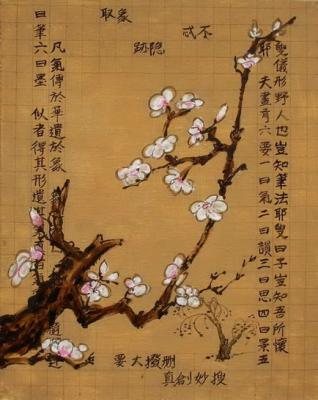 取象
不
隐跡
叟儀形野人也豈知筆法耶叟曰子豈知吾所懷
耶 夫畫有六要一曰氣二曰韻三曰思四曰景五
凡氣傳於華遺於象
曰筆六曰墨 似者得其形遺其
刪撥大要
搜妙創真